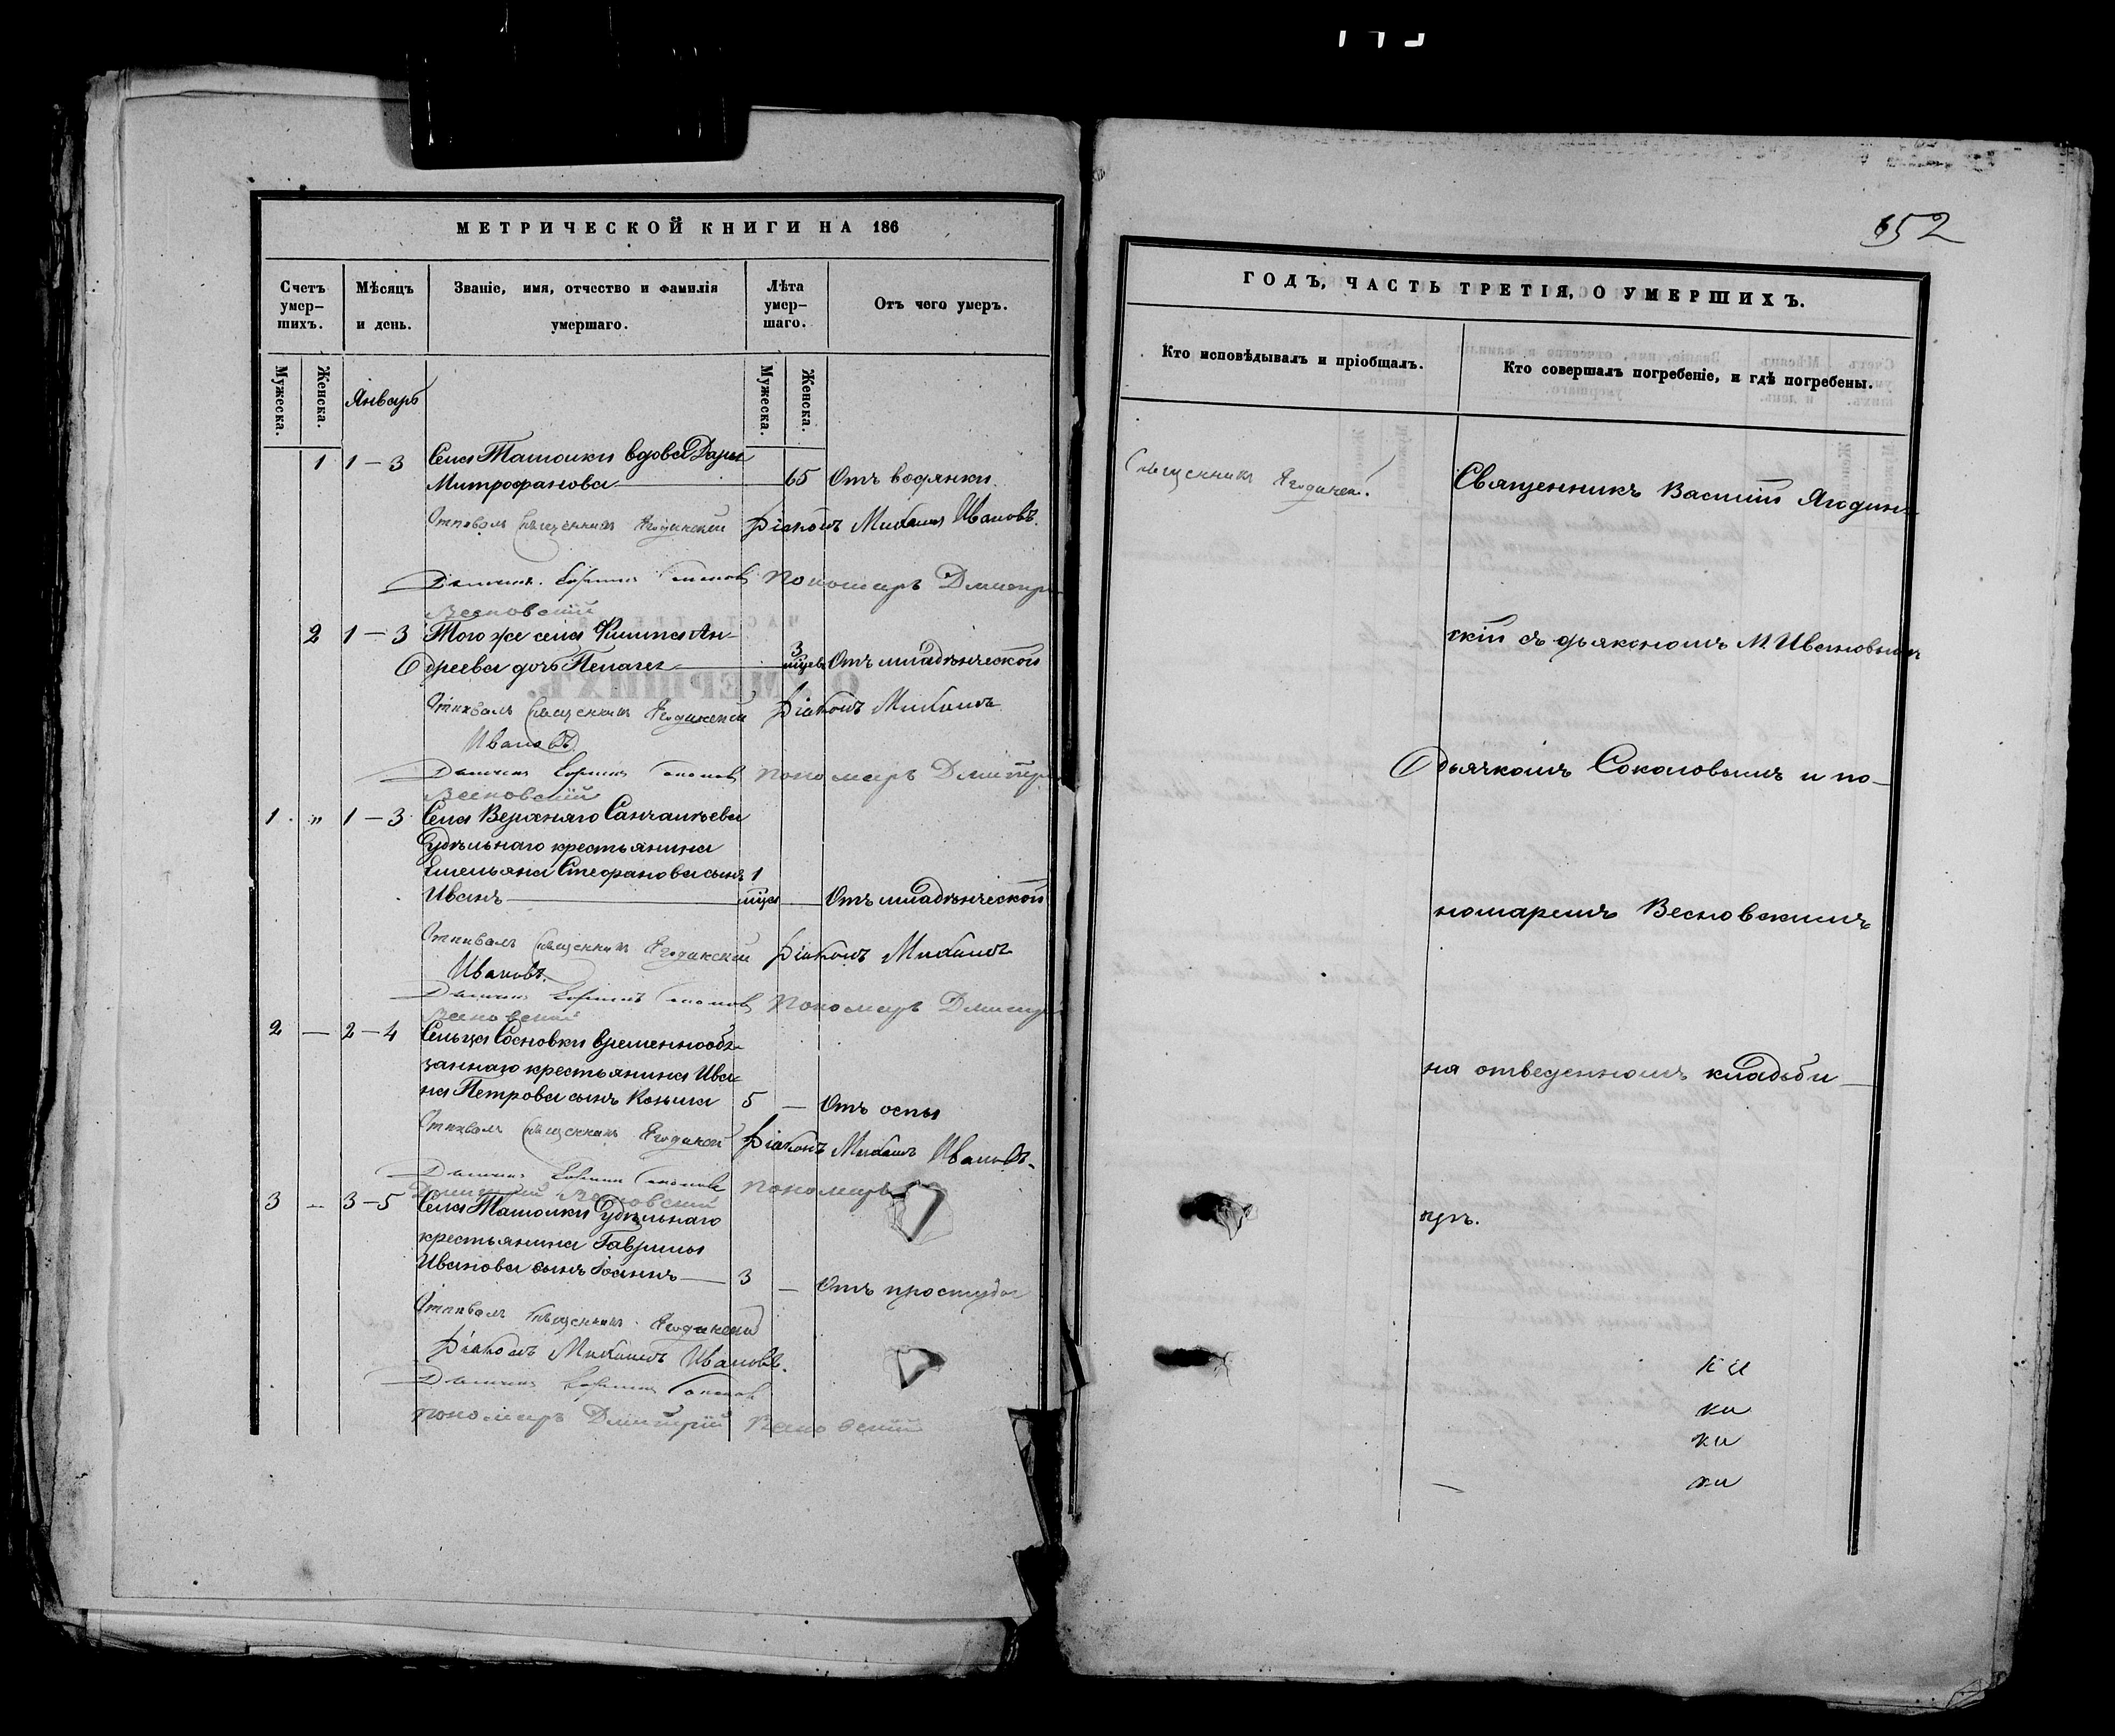 МЕТРИЧЕСКОЙ КНИГИ НА 186
Счетъ умер-шихъ.
Мѣсяцъ и день.
Званіе, имя, отчество и фамилія умершаго.
Лѣта умер-шаго.
Отъ чего умеръ.
Мужеска.
Женска.
Январь
Мужеска.
Женска.
1 1–3 Села Ташолки вдова Дарья
Митрофанова 65 Отъ водянки.
Отпѣвалъ Священникъ Ягодинскій Діаконъ Михаилъ Ивановъ.
Пономарь Дмитрій
Весновскій
2 1–3 Того же села Филиппа Ан-
дреева дочь Пелагея 3 мѣсяц Отъ младенческой
Отпѣвалъ Священникъ Ягодинскій Діаконъ Михаилъ
Ивановъ
Пономарь Дмитрій
Весновскій
1 " 1–3 Села Верхняго Санчалѣева
Удѣльнаго крестьянина
Емельяна Стефанова сынъ 1
Иванъ мѣсяца Отъ младенческой
Отпѣвалъ Священникъ Ягодинскій Діаконъ Михаилъ
Ивановъ.
Пономарь Дмитрій
Весновскій
2 — 2–4 Сельца Сосновки временнообя-
заннаго крестьянина Ива-
на Петрова сынъ Козьма 5 — Отъ оспы
Отпѣвалъ Священникъ Ягодинскій Діаконъ Михаилъ Ивановъ.
Пономарь
Дмитрій Весновскій
3 — 3–5 Села Ташолки Удѣльнаго
крестьянина Гаврилы
Иванова сынъ Іоаннъ 3 — Отъ простуды
Отпѣвалъ Священникъ Ягодинскій
Діаконъ Михаилъ Ивановъ.
Пономарь Дмитрій Весновскій
652
ГОДЪ, ЧАСТЬ ТРЕТІЯ, О УМЕРШИХЪ.
Кто исповѣдывалъ и пріобщалъ.
Кто совершалъ погребеніе, и гдѣ погребены.
Священникъ Ягодинскій.
Священникъ Василій Ягодин-
скій съ дьякономъ М. Ивановымъ
дьячкомъ Соколовымъ и по-
номаремъ Весновскимъ
на отведенномъ кладби-
щѣ.
ки
ки
ки
ки